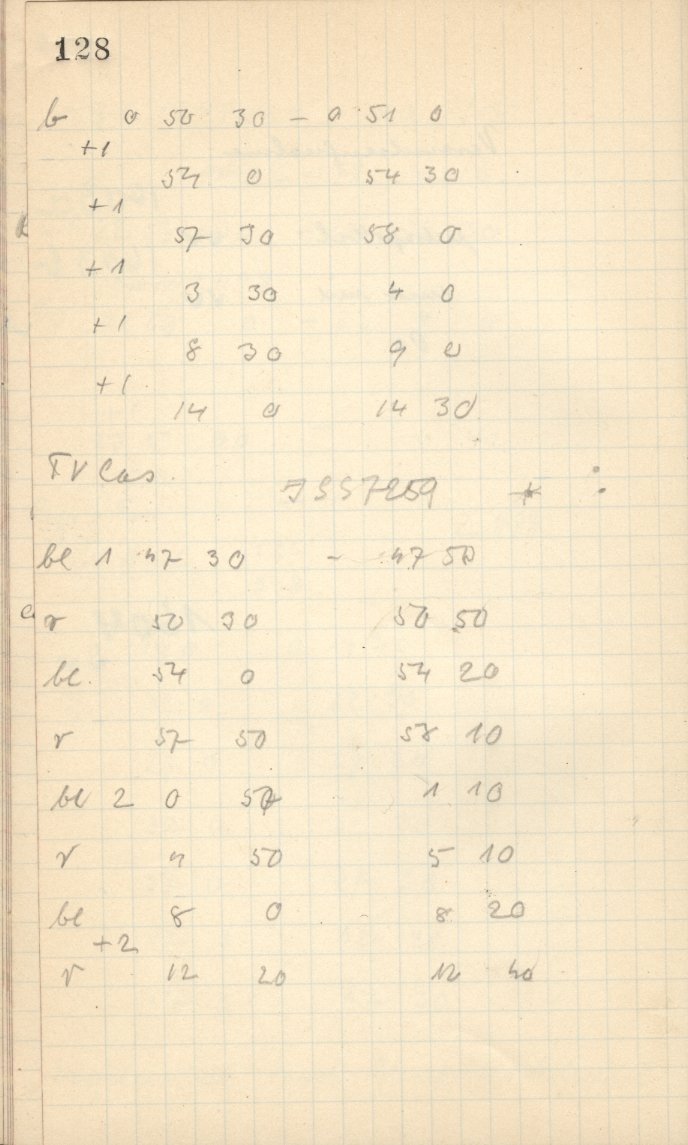 128
b 0 50 30 – 0 51 0
+1
54 0 54 30
+1
57 30 58 0
+1
3 30 4 0
+1
8 30 9 0
+1
14 0 14 30
TV Cas
bl 1 47 30 – 47 50
r 50 30 50 50
bl. 54 0 54 20
r 57 50 58 10
bl 2 0 50 1 10
r 4 50 5 10
bl 8 0 8 20
+2
r 12 20 12 40